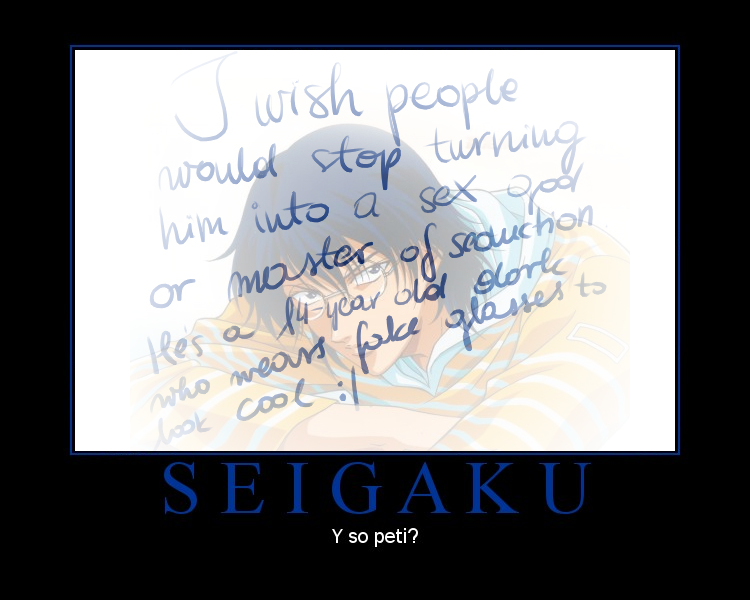 I wish people
would stop turning
him into a sex god
or master of seduction
He's a 14-year old dork
who wears fake glasses to
look cool :/
SEIGAKU
Y so peti?